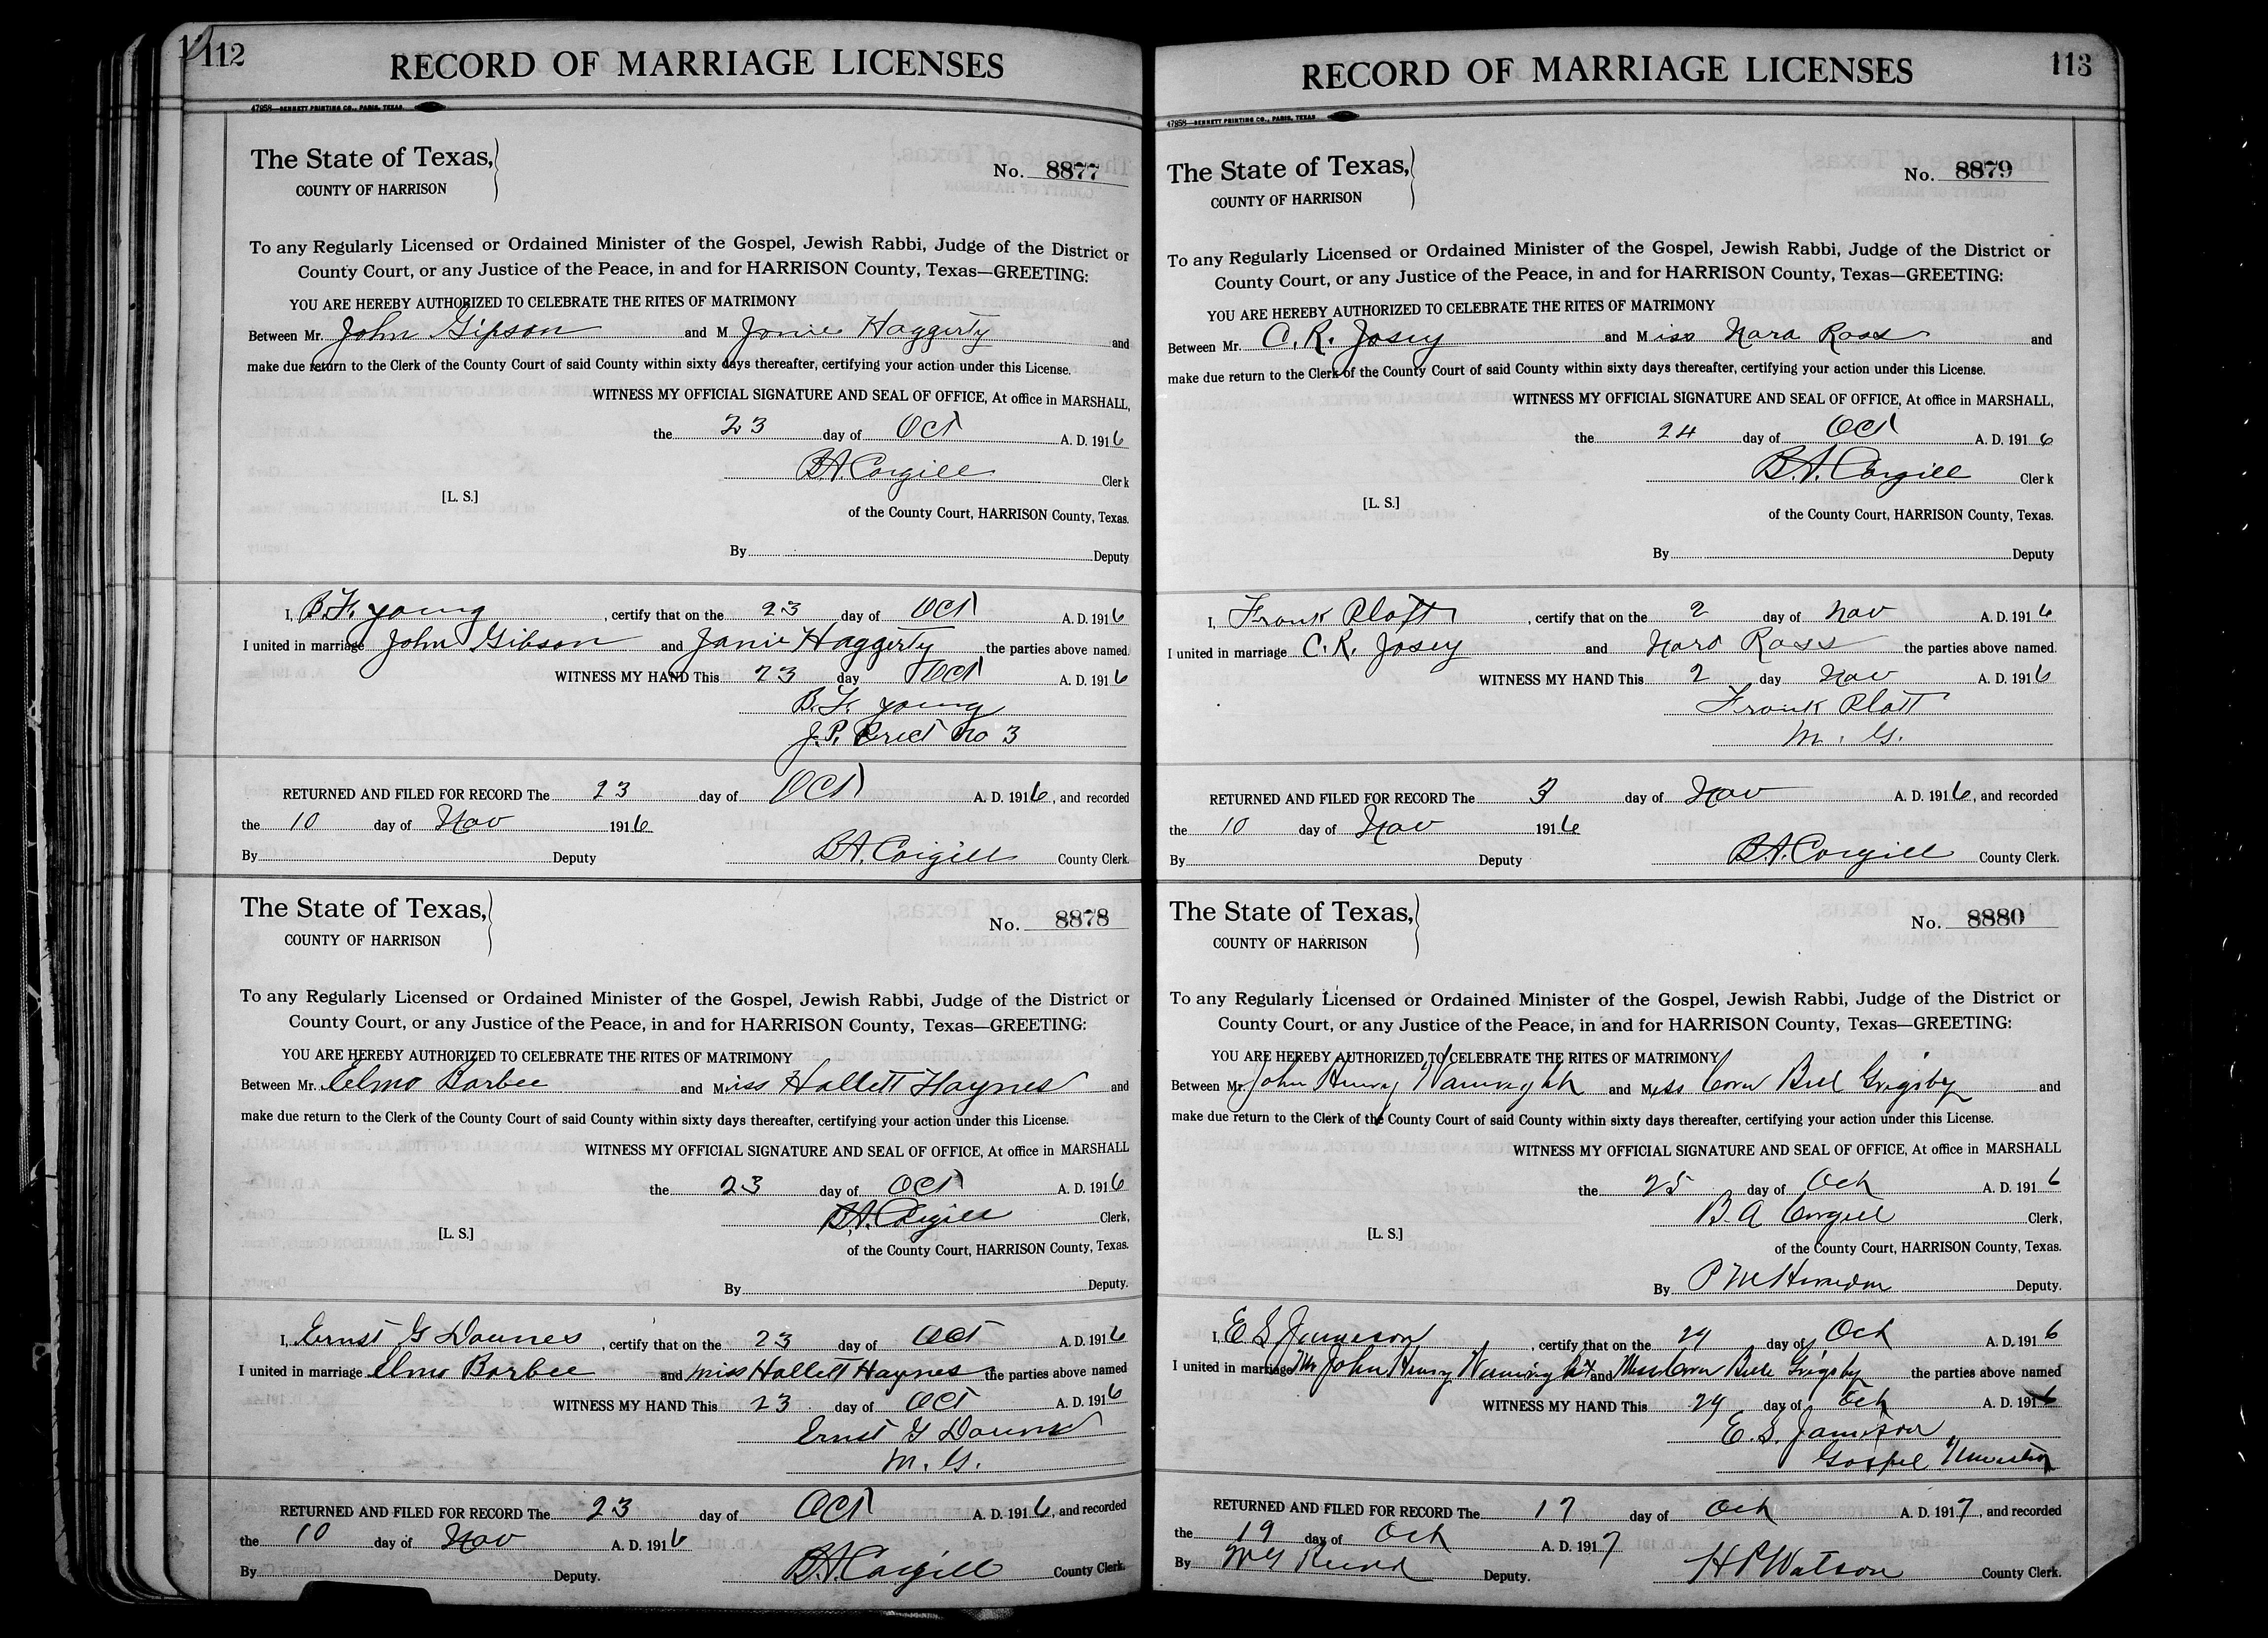 112
RECORD OF MARRIAGE LICENSES
47958—BENNETT PRINTING CO., PARIS, TEXAS
The State of Texas,
COUNTY OF HARRISON
No. 8877
To any Regularly Licensed or Ordained Minister of the Gospel, Jewish Rabbi, Judge of the District or
County Court, or any Justice of the Peace, in and for HARRISON County, Texas—GREETING:
YOU ARE HEREBY AUTHORIZED TO CELEBRATE THE RITES OF MATRIMONY
Between Mr. John Gipson and M Janie Haggerty and
make due return to the Clerk of the County Court of said County within sixty days thereafter, certifying your action under this License.
WITNESS MY OFFICIAL SIGNATURE AND SEAL OF OFFICE, At office in MARSHALL,
the 23 day of Oct A. D. 1916
B.A. Cargill Clerk
[L. S.]
of the County Court, HARRISON County, Texas.
By Deputy
I, B.F. Young, certify that on the 23 day of Oct A. D. 1916
I united in marriage John Gibson and Janie Haggerty the parties above named
WITNESS MY HAND This 23 day Oct A. D. 1916
B.F. Young
J.P. Prect No 3
RETURNED AND FILED FOR RECORD The 23 day of Oct A. D. 1916, and recorded
the 10 day of Nov 1916
By Deputy B.A. Cargill County Clerk.
The State of Texas,
COUNTY OF HARRISON
No. 8878
To any Regularly Licensed or Ordained Minister of the Gospel, Jewish Rabbi, Judge of the District or
County Court, or any Justice of the Peace, in and for HARRISON County, Texas—GREETING:
YOU ARE HEREBY AUTHORIZED TO CELEBRATE THE RITES OF MATRIMONY
Between Mr. Elmo Barbee and Miss Hallett Haynes and
make due return to the Clerk of the County Court of said County within sixty days thereafter, certifying your action under this License.
WITNESS MY OFFICIAL SIGNATURE AND SEAL OF OFFICE, At office in MARSHALL
the 23 day of Oct A. D. 1916
B.A. Cargill Clerk,
[L. S.]
of the County Court, HARRISON County, Texas.
By Deputy.
I, Ernst G Downes, certify that on the 23 day of Oct A. D. 1916
I united in marriage Elmo Barbee and Miss Hallett Haynes the parties above named
WITNESS MY HAND This 23 day of Oct A. D. 1916
Ernst G Downes
M. G.
RETURNED AND FILED FOR RECORD The 23 day of Oct A. D. 1916, and recorded
the 10 day of Nov A. D. 1916
By Deputy. B.A. Cargill County Clerk.
113
RECORD OF MARRIAGE LICENSES
47958—BENNETT PRINTING CO., PARIS, TEXAS
The State of Texas,
COUNTY OF HARRISON
No. 8879
To any Regularly Licensed or Ordained Minister of the Gospel, Jewish Rabbi, Judge of the District or
County Court, or any Justice of the Peace, in and for HARRISON County, Texas—GREETING:
YOU ARE HEREBY AUTHORIZED TO CELEBRATE THE RITES OF MATRIMONY
Between Mr. C. R. Josey and Miss Nara Ross and
make due return to the Clerk of the County Court of said County within sixty days thereafter, certifying your action under this License.
WITNESS MY OFFICIAL SIGNATURE AND SEAL OF OFFICE, At office in MARSHALL,
the 24 day of Oct A. D. 1916
B.A. Cargill Clerk
[L. S.]
of the County Court, HARRISON County, Texas.
By Deputy
I, Frank Platt, certify that on the 2 day of Nov A. D. 1916
I united in marriage C. R. Josey and Nora Ross the parties above named.
WITNESS MY HAND This 2 day Nov A. D. 1916
Frank Platt
M. G.
RETURNED AND FILED FOR RECORD The 3 day of Nov A. D. 1916, and recorded
the 10 day of Nov 1916
By Deputy B.A. Cargill County Clerk.
The State of Texas,
COUNTY OF HARRISON
No. 8880
To any Regularly Licensed or Ordained Minister of the Gospel, Jewish Rabbi, Judge of the District or
County Court, or any Justice of the Peace, in and for HARRISON County, Texas—GREETING:
YOU ARE HEREBY AUTHORIZED TO CELEBRATE THE RITES OF MATRIMONY
Between Mr. John Henry Wainright and Miss Cora Bell Grigsby and
make due return to the Clerk of the County Court of said County within sixty days thereafter, certifying your action under this License.
WITNESS MY OFFICIAL SIGNATURE AND SEAL OF OFFICE, At office in MARSHALL
the 25 day of Oct A. D. 1916
B A Cargill Clerk,
[L. S.]
of the County Court, HARRISON County, Texas.
By P M Herndon Deputy.
I, E S Jamison, certify that on the 29 day of Oct A. D. 1916
I united in marriage Mr John Henry Wainright and Miss Cora Bell Grigsby the parties above named
WITNESS MY HAND This 29 day of Oct A. D. 1916
E. S. Jamison
Gospel Minister
RETURNED AND FILED FOR RECORD The 17 day of Oct A. D. 1917, and recorded
the 19 day of Oct A. D. 1917
By Deputy. H P Watson County Clerk.